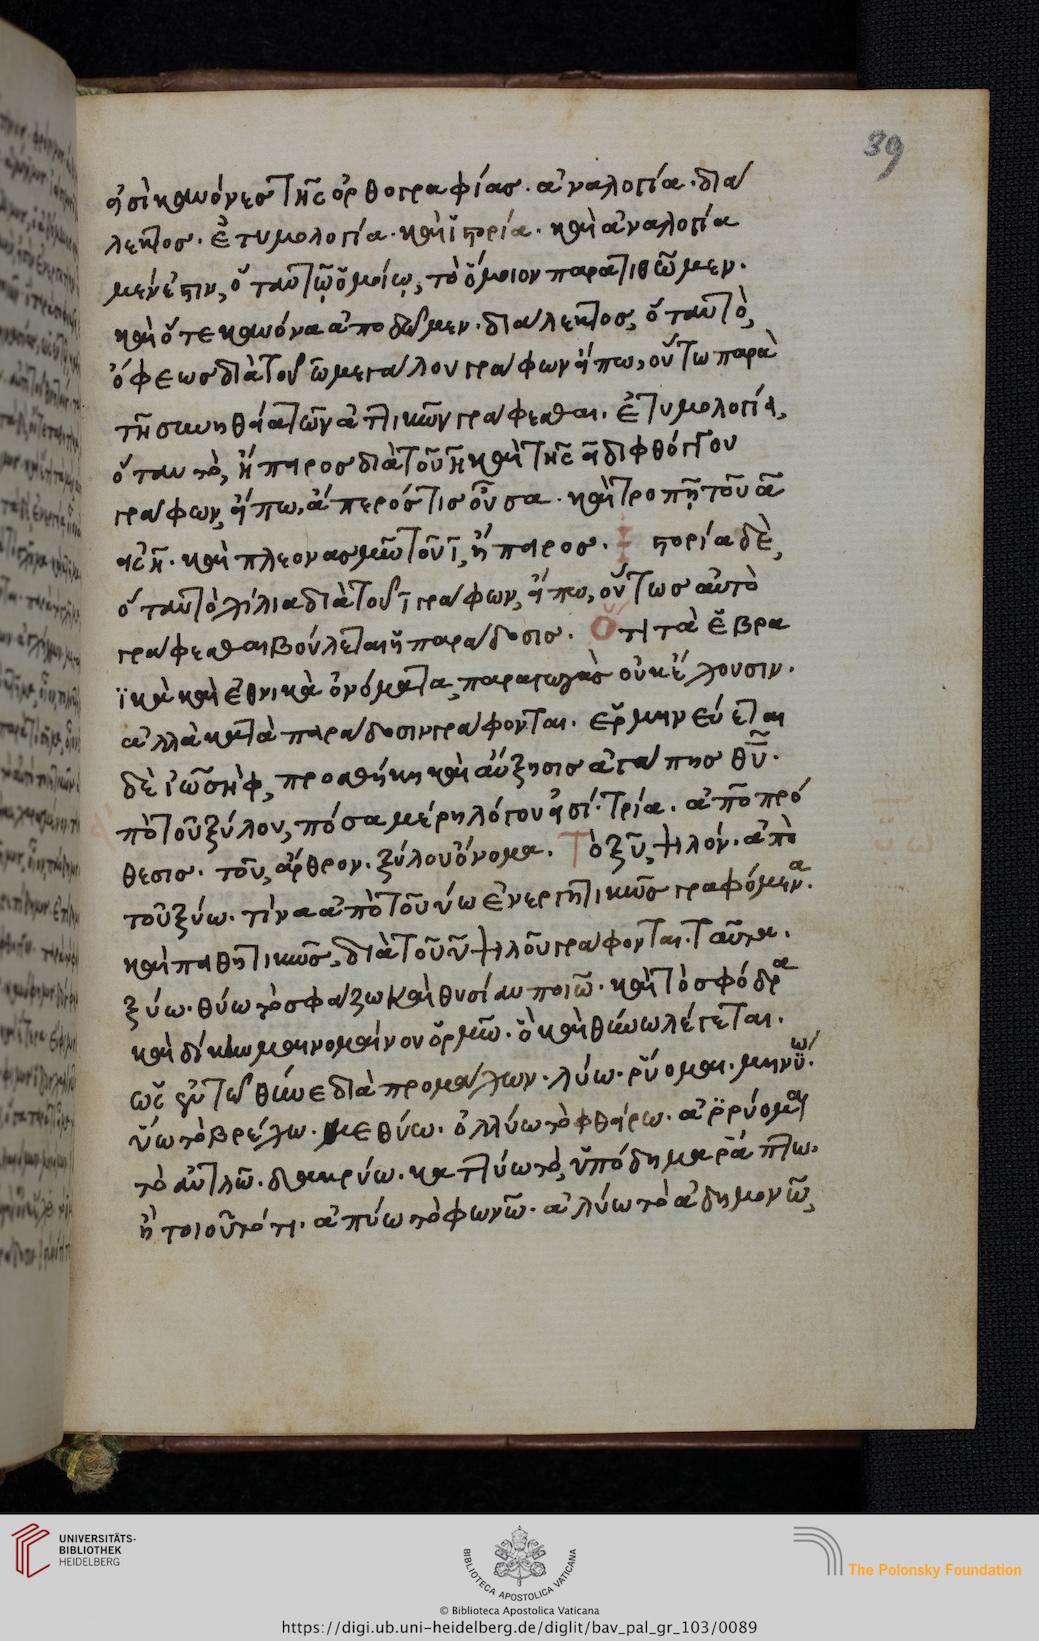 39
εἰσὶ κανόνες τῆς ὀρθογραφίας· ἀναλογία· διά
λεκτος· ἐτυμολογία· καὶ ἱστορία· καὶ ἀναλογία
μέν ἐστιν, ὅταν τῷ ὁμοίῳ, τὸ ὅμοιον παρατιθῶμεν·
καὶ ὅτε κανόνα ἀποδῶμεν· διάλεκτος, ὅταν τὸ,
ὄφεως διὰ τοῦ ω μεγάλου γράφων εἴπω, οὕτω παρὰ
τῇ συνηθείᾳ τῶν ἀττικῶν γράφεσθαι· ἐτυμολογία,
ὅταν τὸ, ἤπειρος διὰ τοῦ η καὶ τῆς ει διφθόγγου
γράφων, εἴπω, ἀπερός τις οὖσα· καὶ τροπῇ τοῦ α
εἰς η· καὶ πλεονασμῶ τοῦ ι, ἤπειρος· Ἱστορία δὲ,
ὅταν τὸ λίλια διὰ τοῦ ι γράφων, εἴπω, οὕτως αὐτὸ
γράφεσθαι βούλεται ἡ παράδοσις· Ὅτι τὰ ἑβρα
ϊκὰ καὶ ἐθνικὰ ὀνόματα, παραγωγὰς οὐκ
ἀλλὰ κατὰ παράδοσιν γράφονται· ἑρμηνεύεται
δὲ ἰωσὴφ, προσθήκη καὶ αὔξησις ἀγάπης θυ·
πὸ τοῦ ξύλου, πόσα μέρη λόγου εἰσί· τρία· ἀπὸ πρό
θεσις· τοῦ, ἄρθρον· ξύλου ὄνομα· Τὸ ξυ, ψιλόν· ἀπὸ
τοῦ ξύω· τίνα ἀπὸ τοῦ ύω ἐνεργητικῶς γραφόμενα·
καὶ παθητικῶς, διὰ τοῦ υ ψιλοῦ γράφονται· ταῦτα·
ξύω· θύω τὸ σφάζω καὶ θυσίαν ποιῶ· καὶ τὸ σφόδρα
καὶ μαινομαίνον ὁρμῶ· ὃ καὶ θύνω λέγεται·
ὡς θύνε διὰ προμάχων· λύω· ῥύομαι· μηνύω·
ὕω τὸ βρέχω· μεθύω· ὀλλύω τὸ φθείρω· ἀρρύομαι
τὸ ἀντλῶ· δακρύω· καττύω τὸ, ὑπόδημα ῥάπτω,
ἢ τοιοῦτό τι· ἀπύω τὸ φωνῶ· ἀλύω τὸ ἀδημονῶ,
UNIVERSITÄTS-
BIBLIOTHEK
HEIDELBERG
BIBLIOTECA APOSTOLICA VATICANA
The Polonsky Foundation
© Biblioteca Apostolica Vaticana
https://digi.ub.uni-heidelberg.de/diglit/bav_pal_gr_103/0089